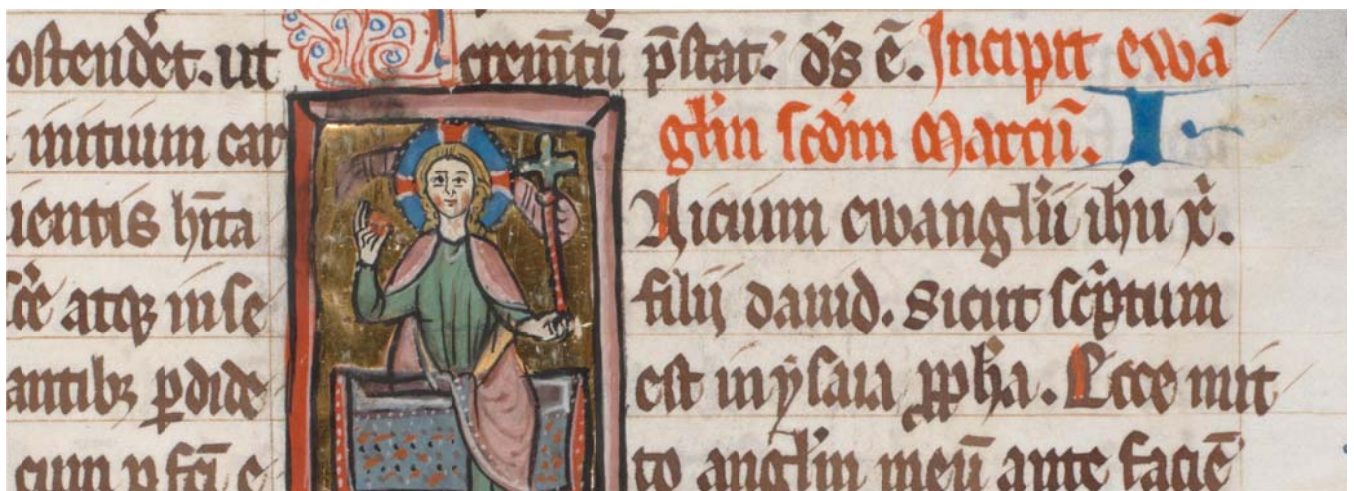 ostend̾et. ut
initium car
uientis hīta
sc̄e atq; in se
antib; ꝑdide
cum
crem̄tū p̄stat. d̄s ē. Incipit ewā
gl̄iu̅ scd̄m Marcū. I
Nicium ewangl̄ii ih̄u xp̄.
filii dauid. Sicut scͥptum
est in ysaia ꝓph̄a. Ecce mit
to angl̄m meū ante faciē